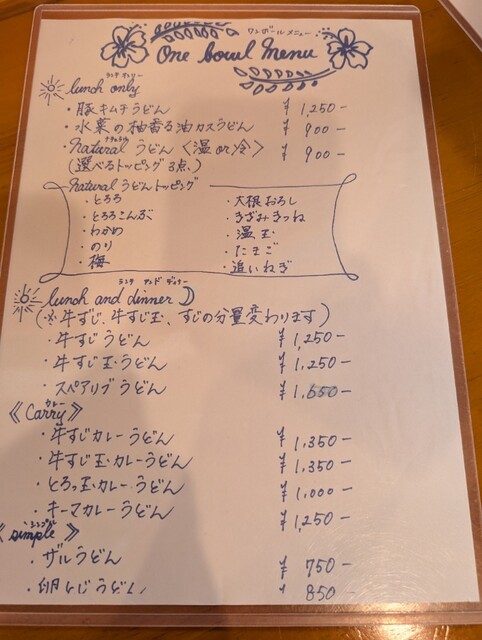 ワンボールメニュー
One bowl Menu
ランチ オンリー
lunch only
・豚キムチうどん ¥ 1,250-
・水菜の柚香る油カスうどん ¥ 900-
ナチュラル
・natural うどん〈温or冷〉 ¥ 900-
(選べるトッピング3点、)
natural うどんトッピング
・とろろ ・大根おろし
・とろろこんぶ ・きざみきつね
・わかめ ・温玉
・のり ・たまご
・梅 ・追いねぎ
ランチ アンド ディナー
lunch and dinner
(※牛すじ、牛すじ玉、すじの分量変わります)
・牛すじうどん ¥1,250-
・牛すじ玉うどん ¥1,250-
・スペアリブうどん ¥1,650-
カレー
《Carry》
・牛すじカレーうどん ¥1,350-
・牛すじ玉カレーうどん ¥1,350-
・とろっ玉カレーうどん ¥1,000-
・キーマカレーうどん ¥1,250-
シンプル
《simple》
・ザルうどん ¥ 750-
・卵とじうどん ¥ 850-